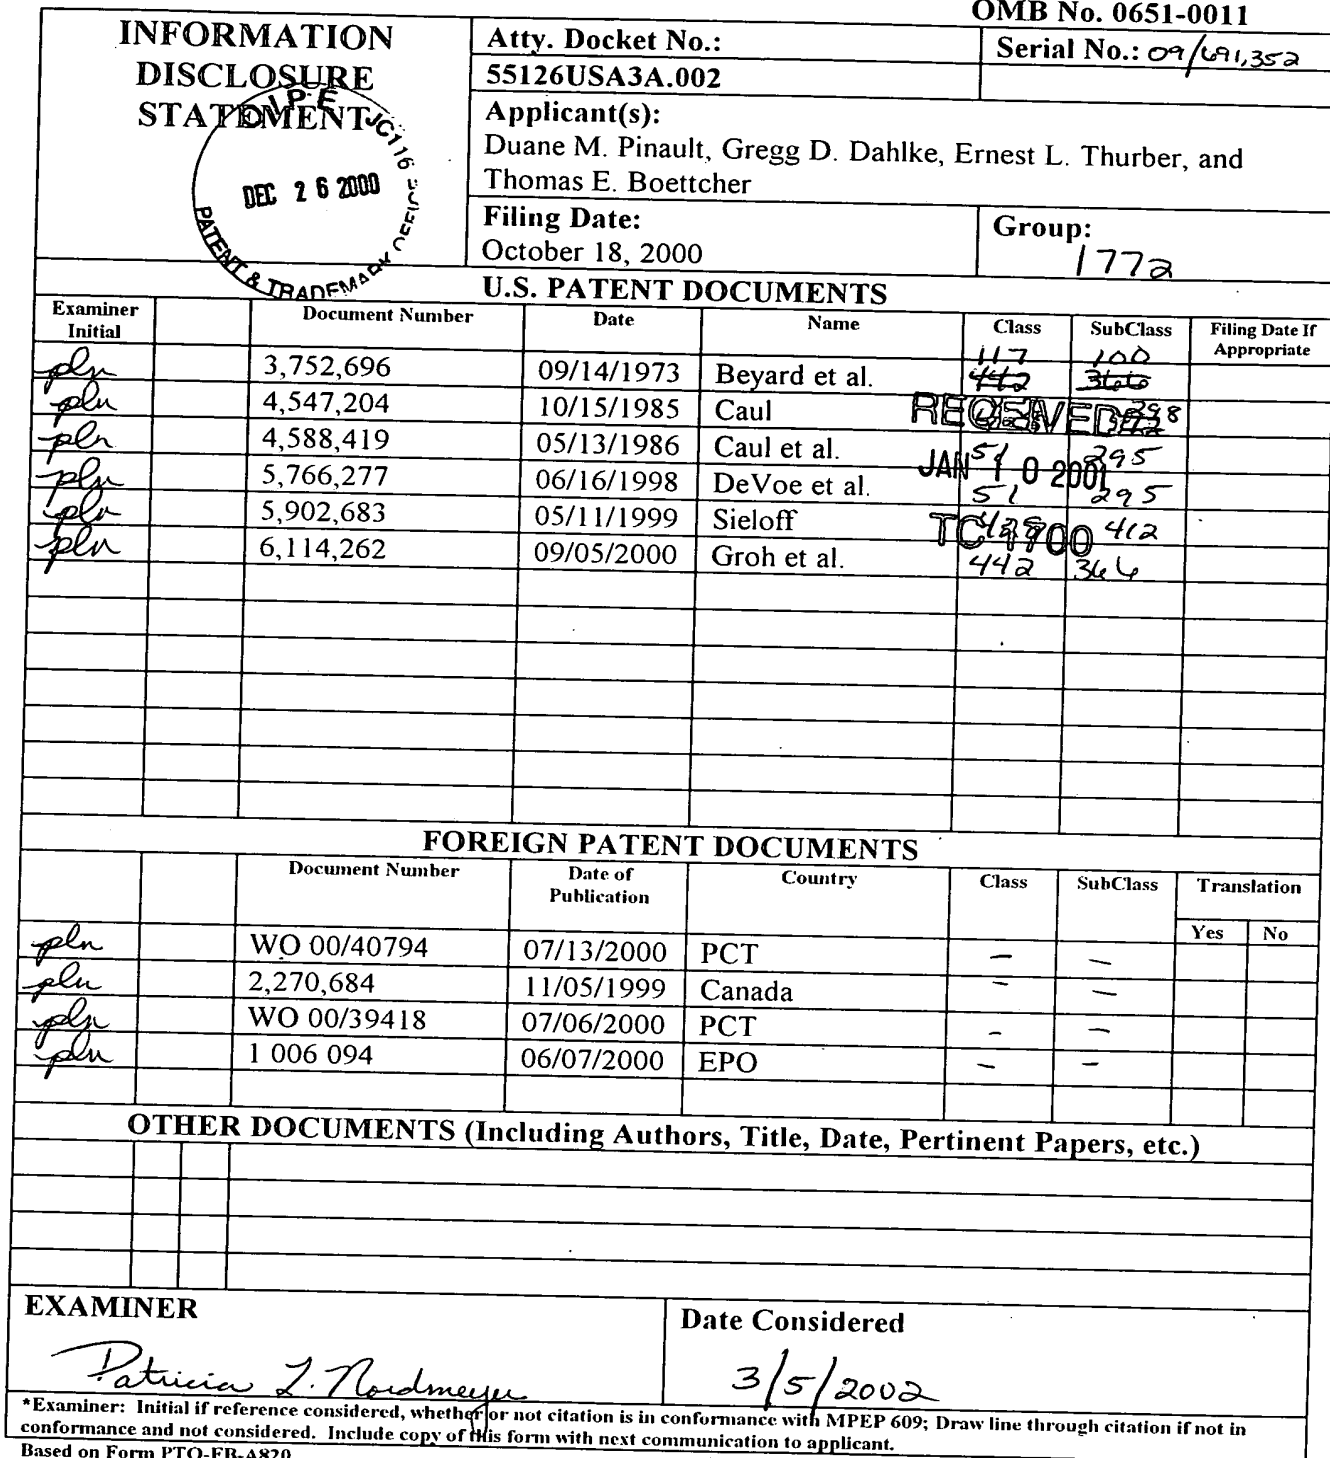 OMB No. 0651-0011
INFORMATION
DISCLOSURE
STATEMENT
Atty. Docket No.:
55126USA3A.002
Serial No.: 09/691,352
Applicant(s):
Duane M. Pinault, Gregg D. Dahlke, Ernest L. Thurber, and
Thomas E. Boettcher
Filing Date:
October 18, 2000
Group:
1772
OIPE JC116
DEC 26 2000
PATENT & TRADEMARK OFFICE
U.S. PATENT DOCUMENTS
Examiner Initial Document Number Date Name Class SubClass Filing Date If Appropriate
117 100
pln 3,752,696 09/14/1973 Beyard et al. 442 366
pln 4,547,204 10/15/1985 Caul 298
pln 4,588,419 05/13/1986 Caul et al. 51 295
pln 5,766,277 06/16/1998 DeVoe et al. 51 295
pln 5,902,683 05/11/1999 Sieloff 412
pln 6,114,262 09/05/2000 Groh et al. 442 366
RECEIVED
JAN 10 2001
TC 1700
FOREIGN PATENT DOCUMENTS
Document Number Date of Publication Country Class SubClass Translation
Yes No
pln WO 00/40794 07/13/2000 PCT – –
pln 2,270,684 11/05/1999 Canada – –
pln WO 00/39418 07/06/2000 PCT – –
pln 1 006 094 06/07/2000 EPO – –
OTHER DOCUMENTS (Including Authors, Title, Date, Pertinent Papers, etc.)
EXAMINER
Patricia L. Nordmeyer
Date Considered
3/5/2002
*Examiner: Initial if reference considered, whether or not citation is in conformance with MPEP 609; Draw line through citation if not in
conformance and not considered. Include copy of this form with next communication to applicant.
Based on Form PTO-FB-A820